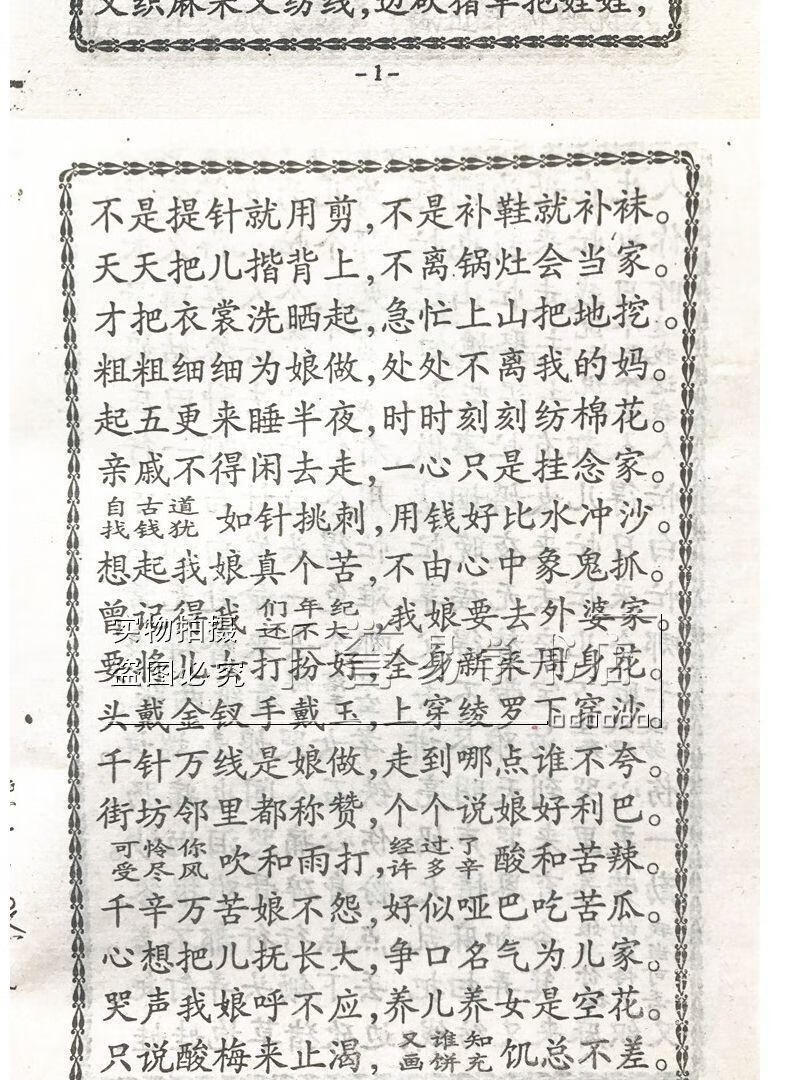 又织麻来又纺线,边砍猪草抱娃娃,
-1-
不是提针就用剪,不是补鞋就补袜。
天天把儿揹背上,不离锅灶会当家。
才把衣裳洗晒起,急忙上山把地挖。
粗粗细细为娘做,处处不离我的妈。
起五更来睡半夜,时时刻刻纺棉花。
亲戚不得闲去走,一心只是挂念家。
自古道找钱犹如针挑刺,用钱好比水冲沙。
想起我娘真个苦,不由心中象鬼抓。
曾记得我们年纪还不大,我娘要去外婆家。
要将儿女打扮好,全身新来周身花。
头戴金钗手戴玉,上穿绫罗下穿沙。
千针万线是娘做,走到哪点谁不夸。
街坊邻里都称赞,个个说娘好利巴。
可怜你受尽风吹和雨打,经过了许多辛酸和苦辣。
千辛万苦娘不怨,好似哑巴吃苦瓜。
心想把儿抚长大,争口名气为儿家。
哭声我娘呼不应,养儿养女是空花。
只说酸梅来止渴,又谁知画饼充饥总不差。
实物拍摄
盗图必究